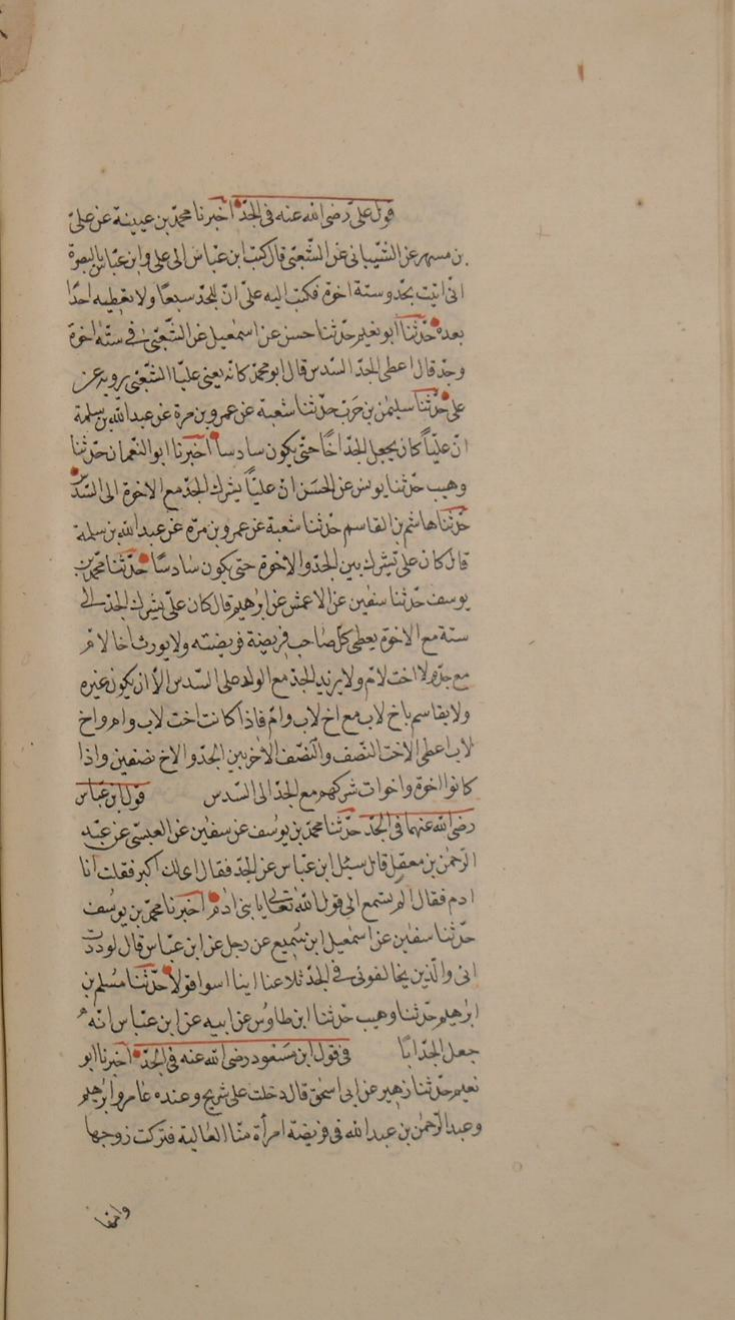 قول على رضى الله عنه فى الجدّ اخبرنا محمد بن عيينة عن علىّ
بن مسهر عن الشيبانى عن الشّعبى قال كتب ابن عباس الى على وابن عبّاس بالبصرة
انّى اتيت بجد وستة اخوة فكتب اليه علىّ انّ للجدّ سبعا ولا تعطيه احدًا
بعده حدّثنا ابو نعيم حدّثنا حسن عن اسمعيل عن الشّعبىّ فى ستّة اخوة
وجدّ قال اعطى الجدّ السّدس قال ابو محمّد كانّه يعنى عليّا الشّعبى يرويه عن
على حدّثنا سليمٰن بن حرب حدّثنا شعبة عن عمرو بن مرة عن عبد الله بن سلمة
انّ عليّاً كان يجعل الجدّ اخًا حتّى يكون سادساً اخبرنا ابو النّعمان حدّثنا
وهيب حدّثنا يونس عن الحسن انّ عليّاً يشرك الجدّ مع الاخوة الى السّدس
حدّثنا هاشم بن القاسم حدّثنا شعبة عن عمرو بن مرّه عن عبد الله بن سلمة
قال كان على يشرك بين الجدّ والاخوة حتى يكون سادسًا حدّثنا محمّد بن
يوسف حدّثنا سفين عن الاعمش عن ابرهيم قال كان علىّ يشرك الجدّ الى
ستة مع الاخوة يعطى كلّ صاحب فريضة فريضته ولا يورث اخا لامّ
مع جدّ ولا اخت لامّ ولا يزيد الجدّ مع الولد على السّدس الّا ان يكون غيره
ولا يقاسم باخ لاب مع اخ لاب وامّ فاذا كانت اخت لاب وام واخ
لاب اعطى الاخت النّصف والنّصف الاخر بين الجدّ والاخ نصفين واذا
كانوا اخوة واخوات شركهم مع الجدّ الى السّدس قول ابن عبّاس
رضى الله عنهما فى الجدّ حدّثنا محمّد بن يوسف عن سفين عن العبسىّ عن عبد
الرّحمٰن بن معقل قال سئل ابن عبّاس عن الجدّ فقال اىّ اب لك اكبر فقلت انا
ادم فقال الم يستمع الى قول الله تعالى يا بنى ادم اخبرنا محمّد بن يوسف
حدّثنا سفين عن اسمعيل ابن سميع عن رجل عن ابن عبّاس قال لوددت
انى والّذين يخالفونى فى الجدّ تلاعنا اينا اسوا قولا حدّثنا مسلم بن
ابرهيم حدّثنا وهيب حدّثنا ابن طاوس عن ابيه عن ابن عبّاس انّه
جعل الجدّ ابًا فى قول ابن مسعود رضى الله عنه فى الجدّ اخبرنا ابو
نعيم حدّثنا زهير عن ابى اسحق قال دخلت على شريح وعنده عامر وابرهيم
وعبد الرّحمٰن بن عبد الله فى فريضة امرأة منّا العالية فتركت زوجها
وامّها